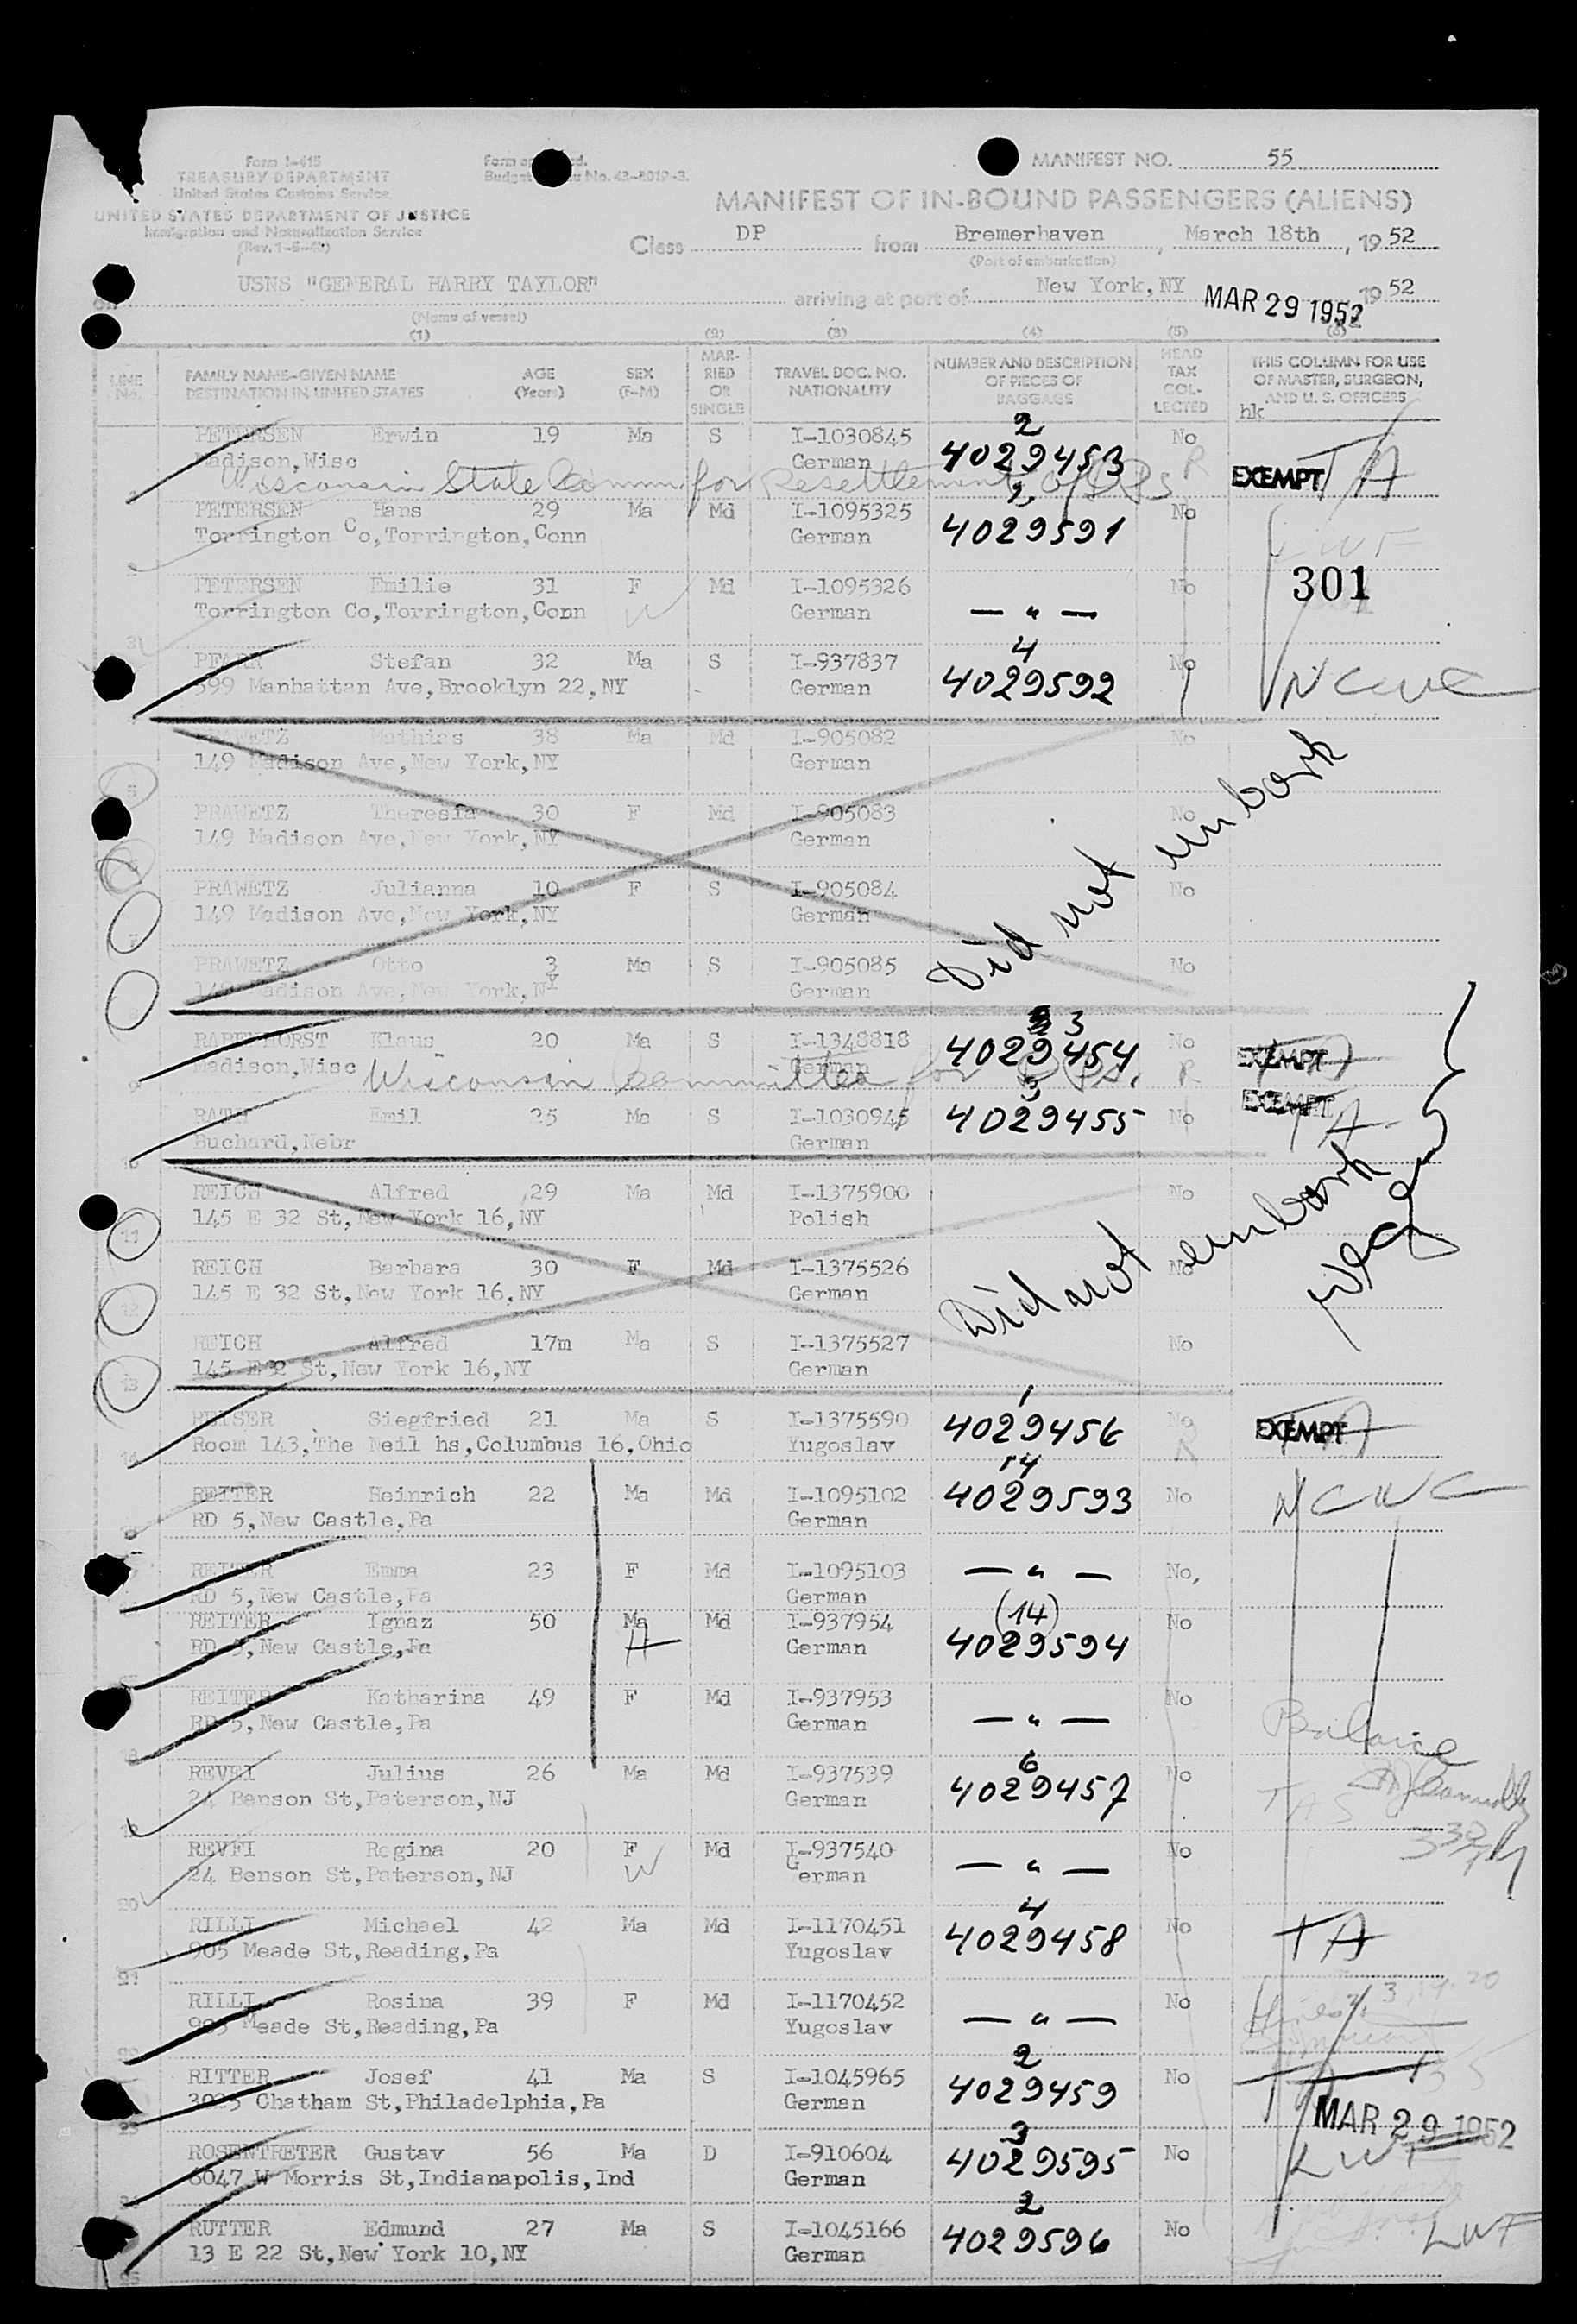 Form I-415
TREASURY DEPARTMENT
United States Customs Service
UNITED STATES DEPARTMENT OF JUSTICE
Immigration and Naturalization Service
Budget No. 43-R019-3.
MANIFEST NO. 55
MANIFEST OF IN-BOUND PASSENGERS (ALIENS)
Class DP from Bremerhaven, March 18th, 1952
(Port of embarkation)
USNS "GENERAL HARRY TAYLOR" arriving at port of New York, NY MAR 29 1952 1952
(Name of vessel)
(1) (2) (3) (4) (5) (6)
LINE No. FAMILY NAME-GIVEN NAME DESTINATION IN UNITED STATES AGE (Years) SEX (F-M) MARRIED OR SINGLE TRAVEL DOC. NO. NATIONALITY NUMBER AND DESCRIPTION OF PIECES OF BAGGAGE HEAD TAX COLLECTED THIS COLUMN FOR USE OF MASTER, SURGEON, AND U. S. OFFICERS
hk
PETERSEN Erwin 19 Ma S I-1030845 2 No
Madison, Wisc German 4029453 R EXEMPT TA
Wisconsin State Comm for Resettlement of DPs
PETERSEN Hans 29 Ma Md I-1095325 2 No
Torrington Co, Torrington, Conn German 4029591 LWF
301
PETERSEN Emilie 31 F Md I-1095326 No
Torrington Co, Torrington, Conn W German — " —
PFARR Stefan 32 Ma S I-937837 4 No
599 Manhattan Ave, Brooklyn 22, NY German 4029592 NCWC
PRAWETZ Mathias 38 Ma Md I-905082 No
149 Madison Ave, New York, NY German
5 PRAWETZ Theresia 30 F Md I-905083 No
149 Madison Ave, New York, NY German
PRAWETZ Julianna 10 F S I-905084 No
149 Madison Ave, New York, NY German
PRAWETZ Otto 3 Ma S I-905085 No
149 Madison Ave, New York, NY German
Did not embark
RABEHORST Klaus 20 Ma S I-1348818 3 No
Madison, Wisc German 4029454 R EXEMPT
Wisconsin Committee for DPs.
RATH Emil 25 Ma S I-1030945 3 No EXEMPT TA
Buchard, Nebr German 4029455
REICH Alfred 29 Ma Md I-1375900 No
11 145 E 32 St, New York 16, NY Polish
REICH Barbara 30 F Md I-1375526 No
12 145 E 32 St, New York 16, NY German
REICH Alfred 17m Ma S I-1375527 No
13 145 E 32 St, New York 16, NY German
Did not embark
REISER Siegfried 21 Ma S I-1375590 1 No
Room 143, The Neil hs, Columbus 16, Ohio Yugoslav 4029456 EXEMPT TA
REITER Heinrich 22 Ma Md I-1095102 14 No NCWC
RD 5, New Castle, Pa German 4029593
REITER Emma 23 F Md I-1095103 — " — No
RD 5, New Castle, Pa German
REITER Ignaz 50 Ma Md I-937954 (14) No
RD 5, New Castle, Pa H German 4029594
REITER Katharina 49 F Md I-937953 No
RD 5, New Castle, Pa German — " —
REVFI Julius 26 Ma Md I-937539 6 No
24 Benson St, Paterson, NJ German 4029457
REVFI Regina 20 F Md I-937540 No
20 24 Benson St, Paterson, NJ W German — " —
RILLI Michael 42 Ma Md I-1170451 4 No TA
905 Meade St, Reading, Pa Yugoslav 4029458
21
RILLI Rosina 39 F Md I-1170452 No
905 Meade St, Reading, Pa Yugoslav — " —
RITTER Josef 41 Ma S I-1045965 2 No TA
Chatham St, Philadelphia, Pa German 4029459
MAR 29 1952
ROSENTRETER Gustav 56 Ma D I-910604 3 No
6047 W Morris St, Indianapolis, Ind German 4029595 LWF
RUTTER Edmund 27 Ma S I-1045166 2 No
13 E 22 St, New York 10, NY German 4029596 LWF